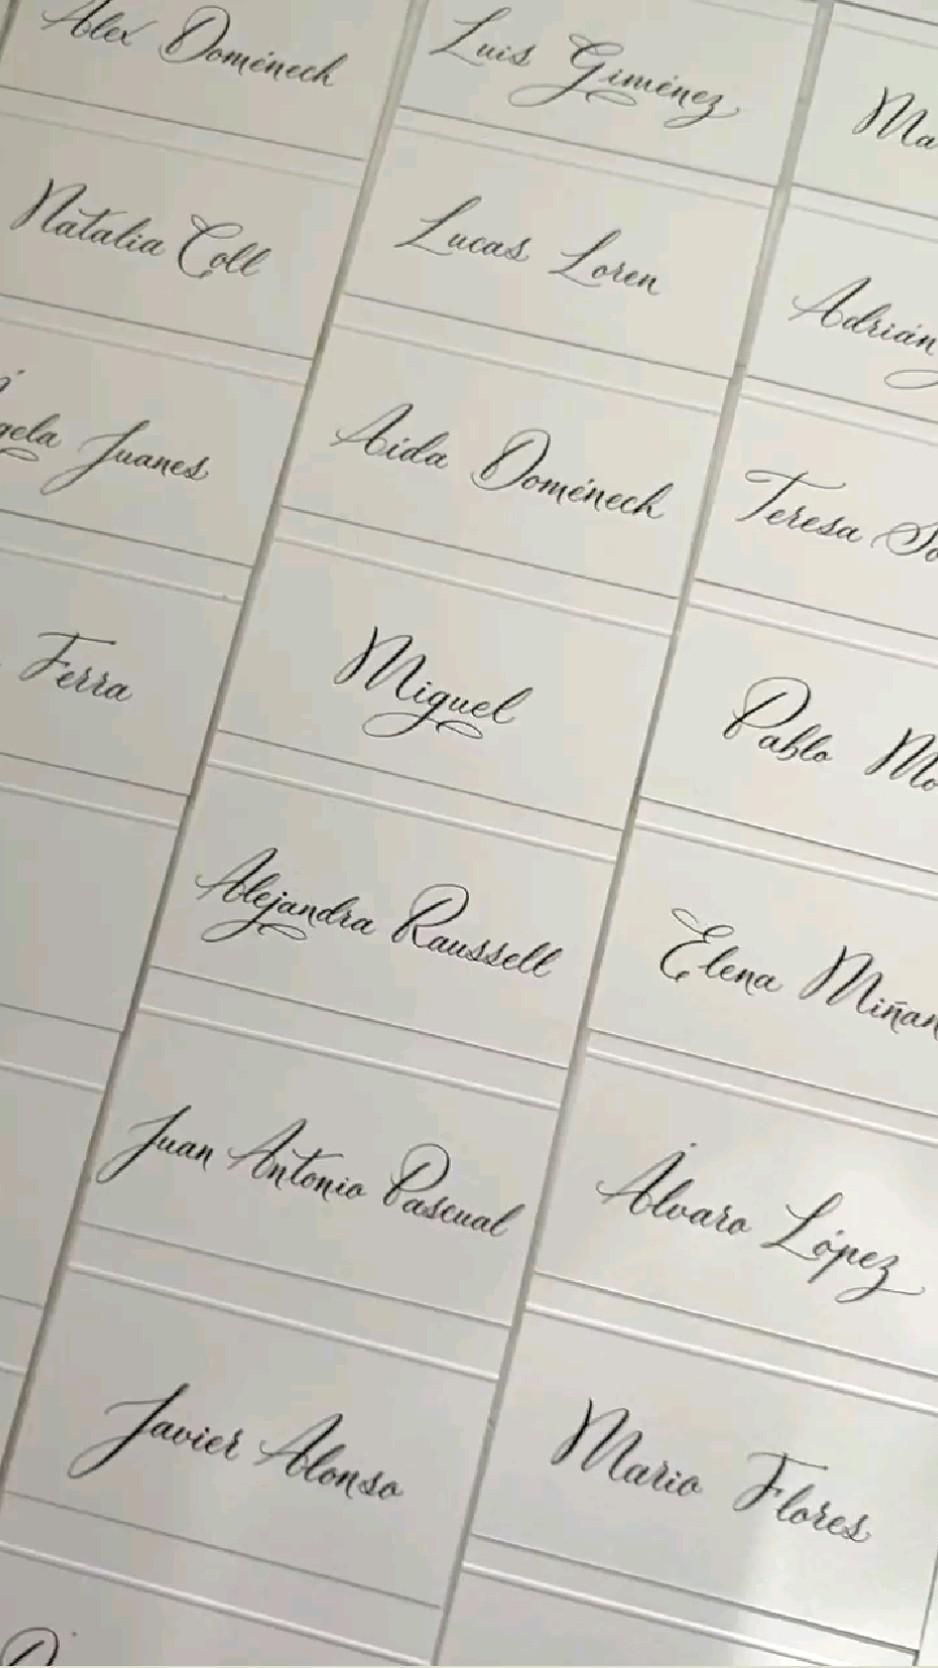 Álex Doménech
Natalia Coll
Juanes
Ferra
Luis Giménez
Lucas Loren
Aida Doménech
Miguel
Alejandra Raussell
Juan Antonio Pascual
Javier Alonso
Adrián
Teresa
Pablo
Elena
Álvaro López
Mario Flores